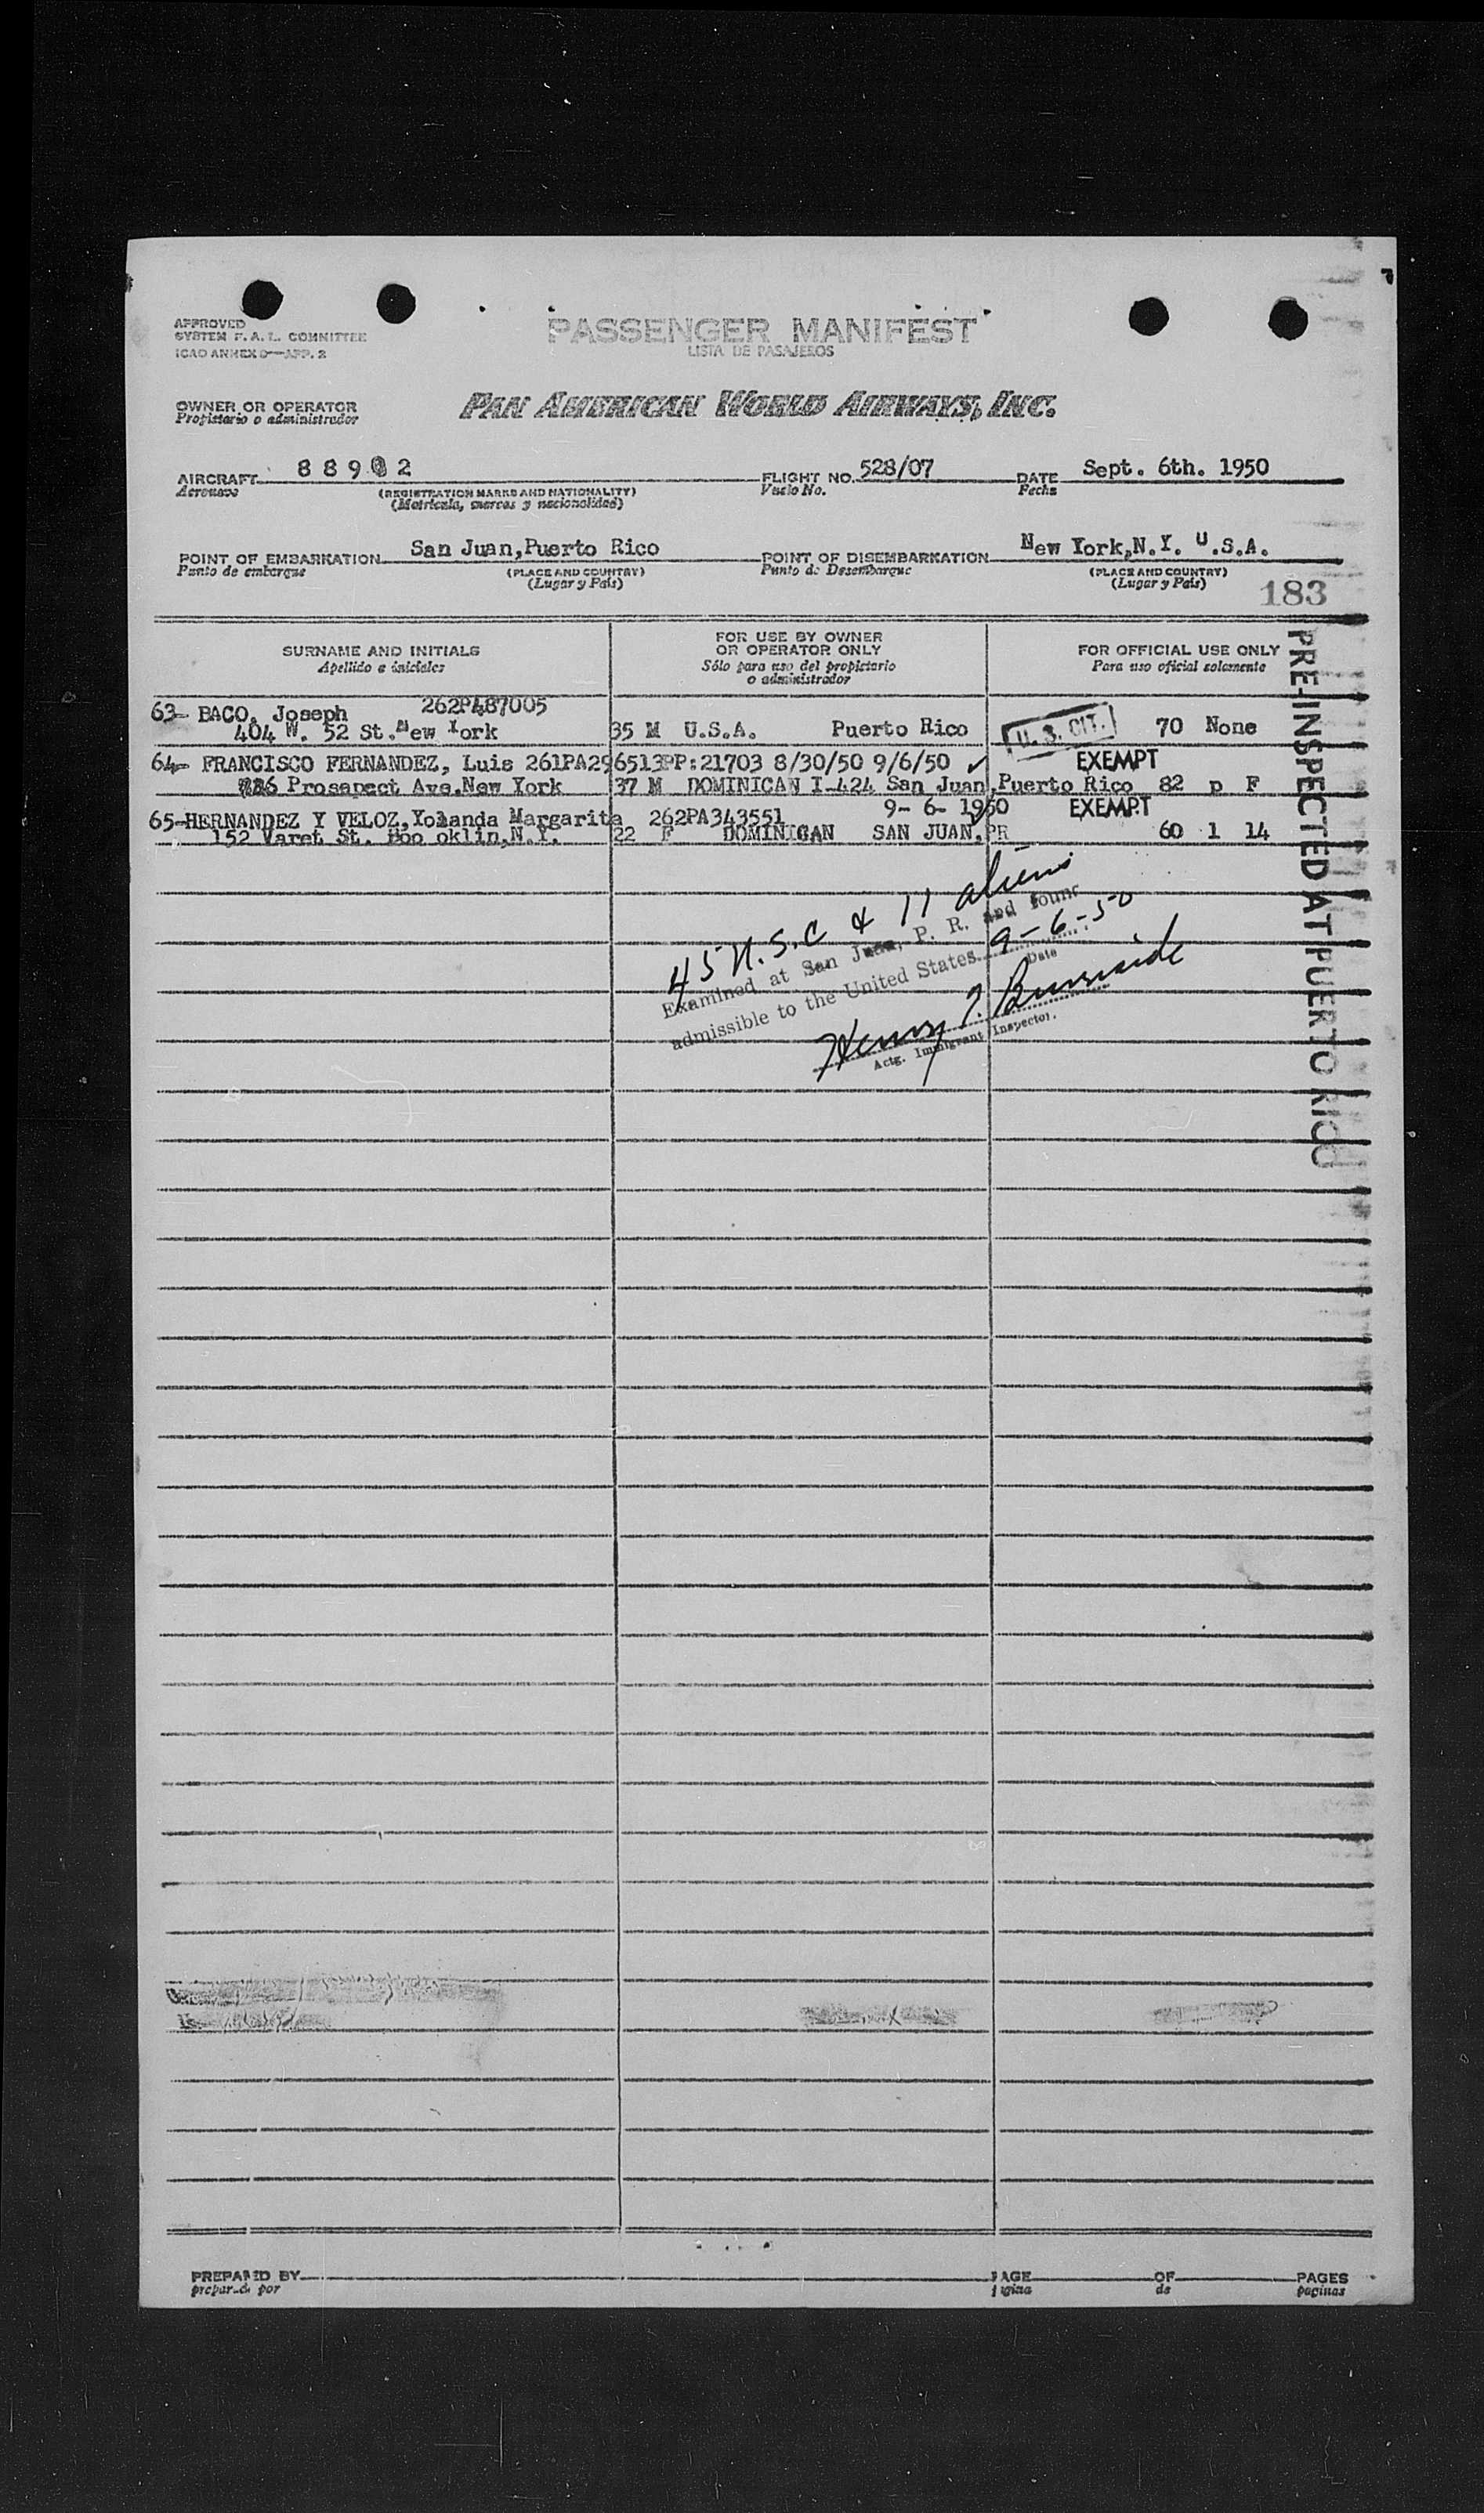 APPROVED
SYSTEM F. A. L. COMMITTEE
ICAO ANNEX 9—APP. 2
PASSENGER MANIFEST
LISTA DE PASAJEROS
OWNER OR OPERATOR
Propietario o administrador
PAN AMERICAN WORLD AIRWAYS, INC.
AIRCRAFT 8 8 9 0 2 FLIGHT NO. 528/07 DATE Sept. 6th. 1950
Aeronave (REGISTRATION MARKS AND NATIONALITY) Vuelo No. Fecha
(Matrícula, marcas y nacionalidad)
POINT OF EMBARKATION San Juan,Puerto Rico POINT OF DISEMBARKATION New York,N.Y. U.S.A.
Punto de embarque (PLACE AND COUNTRY) Punto de Desembarque (PLACE AND COUNTRY)
(Lugar y País) (Lugar y País)
183
SURNAME AND INITIALS
Apellido e iniciales
FOR USE BY OWNER
OR OPERATOR ONLY
Sólo para uso del propietario
o administrador
FOR OFFICIAL USE ONLY
Para uso oficial solamente
63- BACO, Joseph 262PA87005
404 W. 52 St.New York 35 M U.S.A. Puerto Rico U. S. CIT. 70 None
64- FRANCISCO FERNANDEZ, Luis 261PA296513PP:21703 8/30/50 9/6/50 ✓ EXEMPT
Prosapect Ave.New York 37 M DOMINICAN I-424 San Juan,Puerto Rico 82 p F
65-HERNANDEZ Y VELOZ,Yolanda Margarita 262PA343551 9- 6- 1950 EXEMPT
152 Varet St. Boo oklin,N.Y. 22 F DOMINICAN SAN JUAN,PR 60 1 14
45 U.S.C & 11 aliens
Examined at San Juan, P. R. and found
admissible to the United States 9-6-50
Date
Henry Burnside
Actg. Immigrant Inspector.
PRE-INSPECTED AT PUERTO RICO
PREPARED BY PAGE OF PAGES
preparado por página de paginas